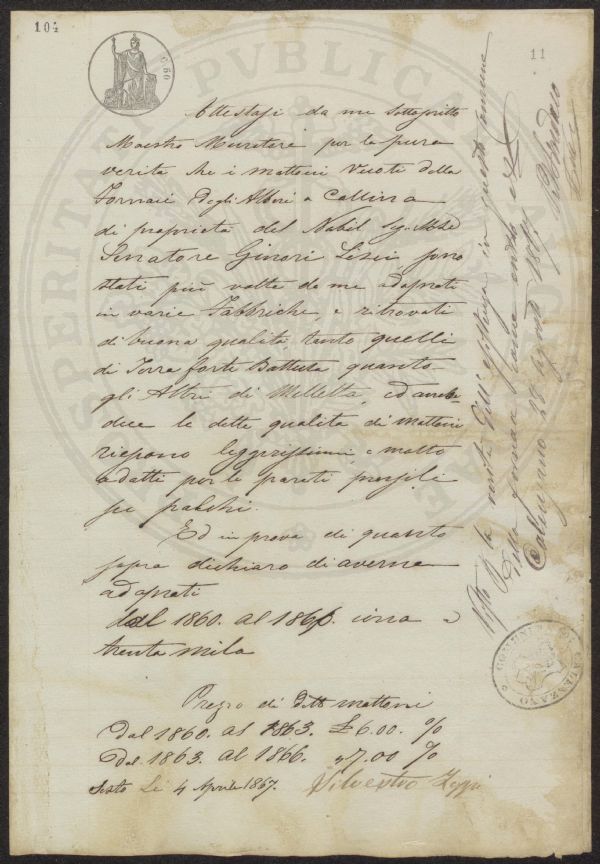 104
11
C. 50
Attestasi da me sottoscritto
Maestro Muratore per la pura
verità che i mattoni Vuoti della
Fornaci Degli Alberi a Collina
di proprietà del Nobil Sig. Mse
Senatore Ginori Lisci sono
stati più volte da me adoprati
in varie Fabbriche, e ritrovati
di buona qualità, tanto quelli
di Terra forte Battuta quanto
gli Altri di Melletta, ed
dice le dette qualità di mattoni
riescono leggerissimi e molto
adatti per le pareti
su palchi.
Ed in prova di quanto
sopra dichiaro di averne
adoprati
dal 1860. al 1866. circa a
trenta mila
Prezzo di detti mattoni
Dal 1860. al 1863. £ 6.00. %
Dal 1863. al 1866. " 7.00 %
Sesto Li 4 Aprile 1867.
Silvestro
Visto per la verità dell'esistenza in questo comune
della fornace
Calenzano 28 1867
Il Sindaco
COMUNITÀ DI CALENZANO
PROSPERITATI PUBLICAE